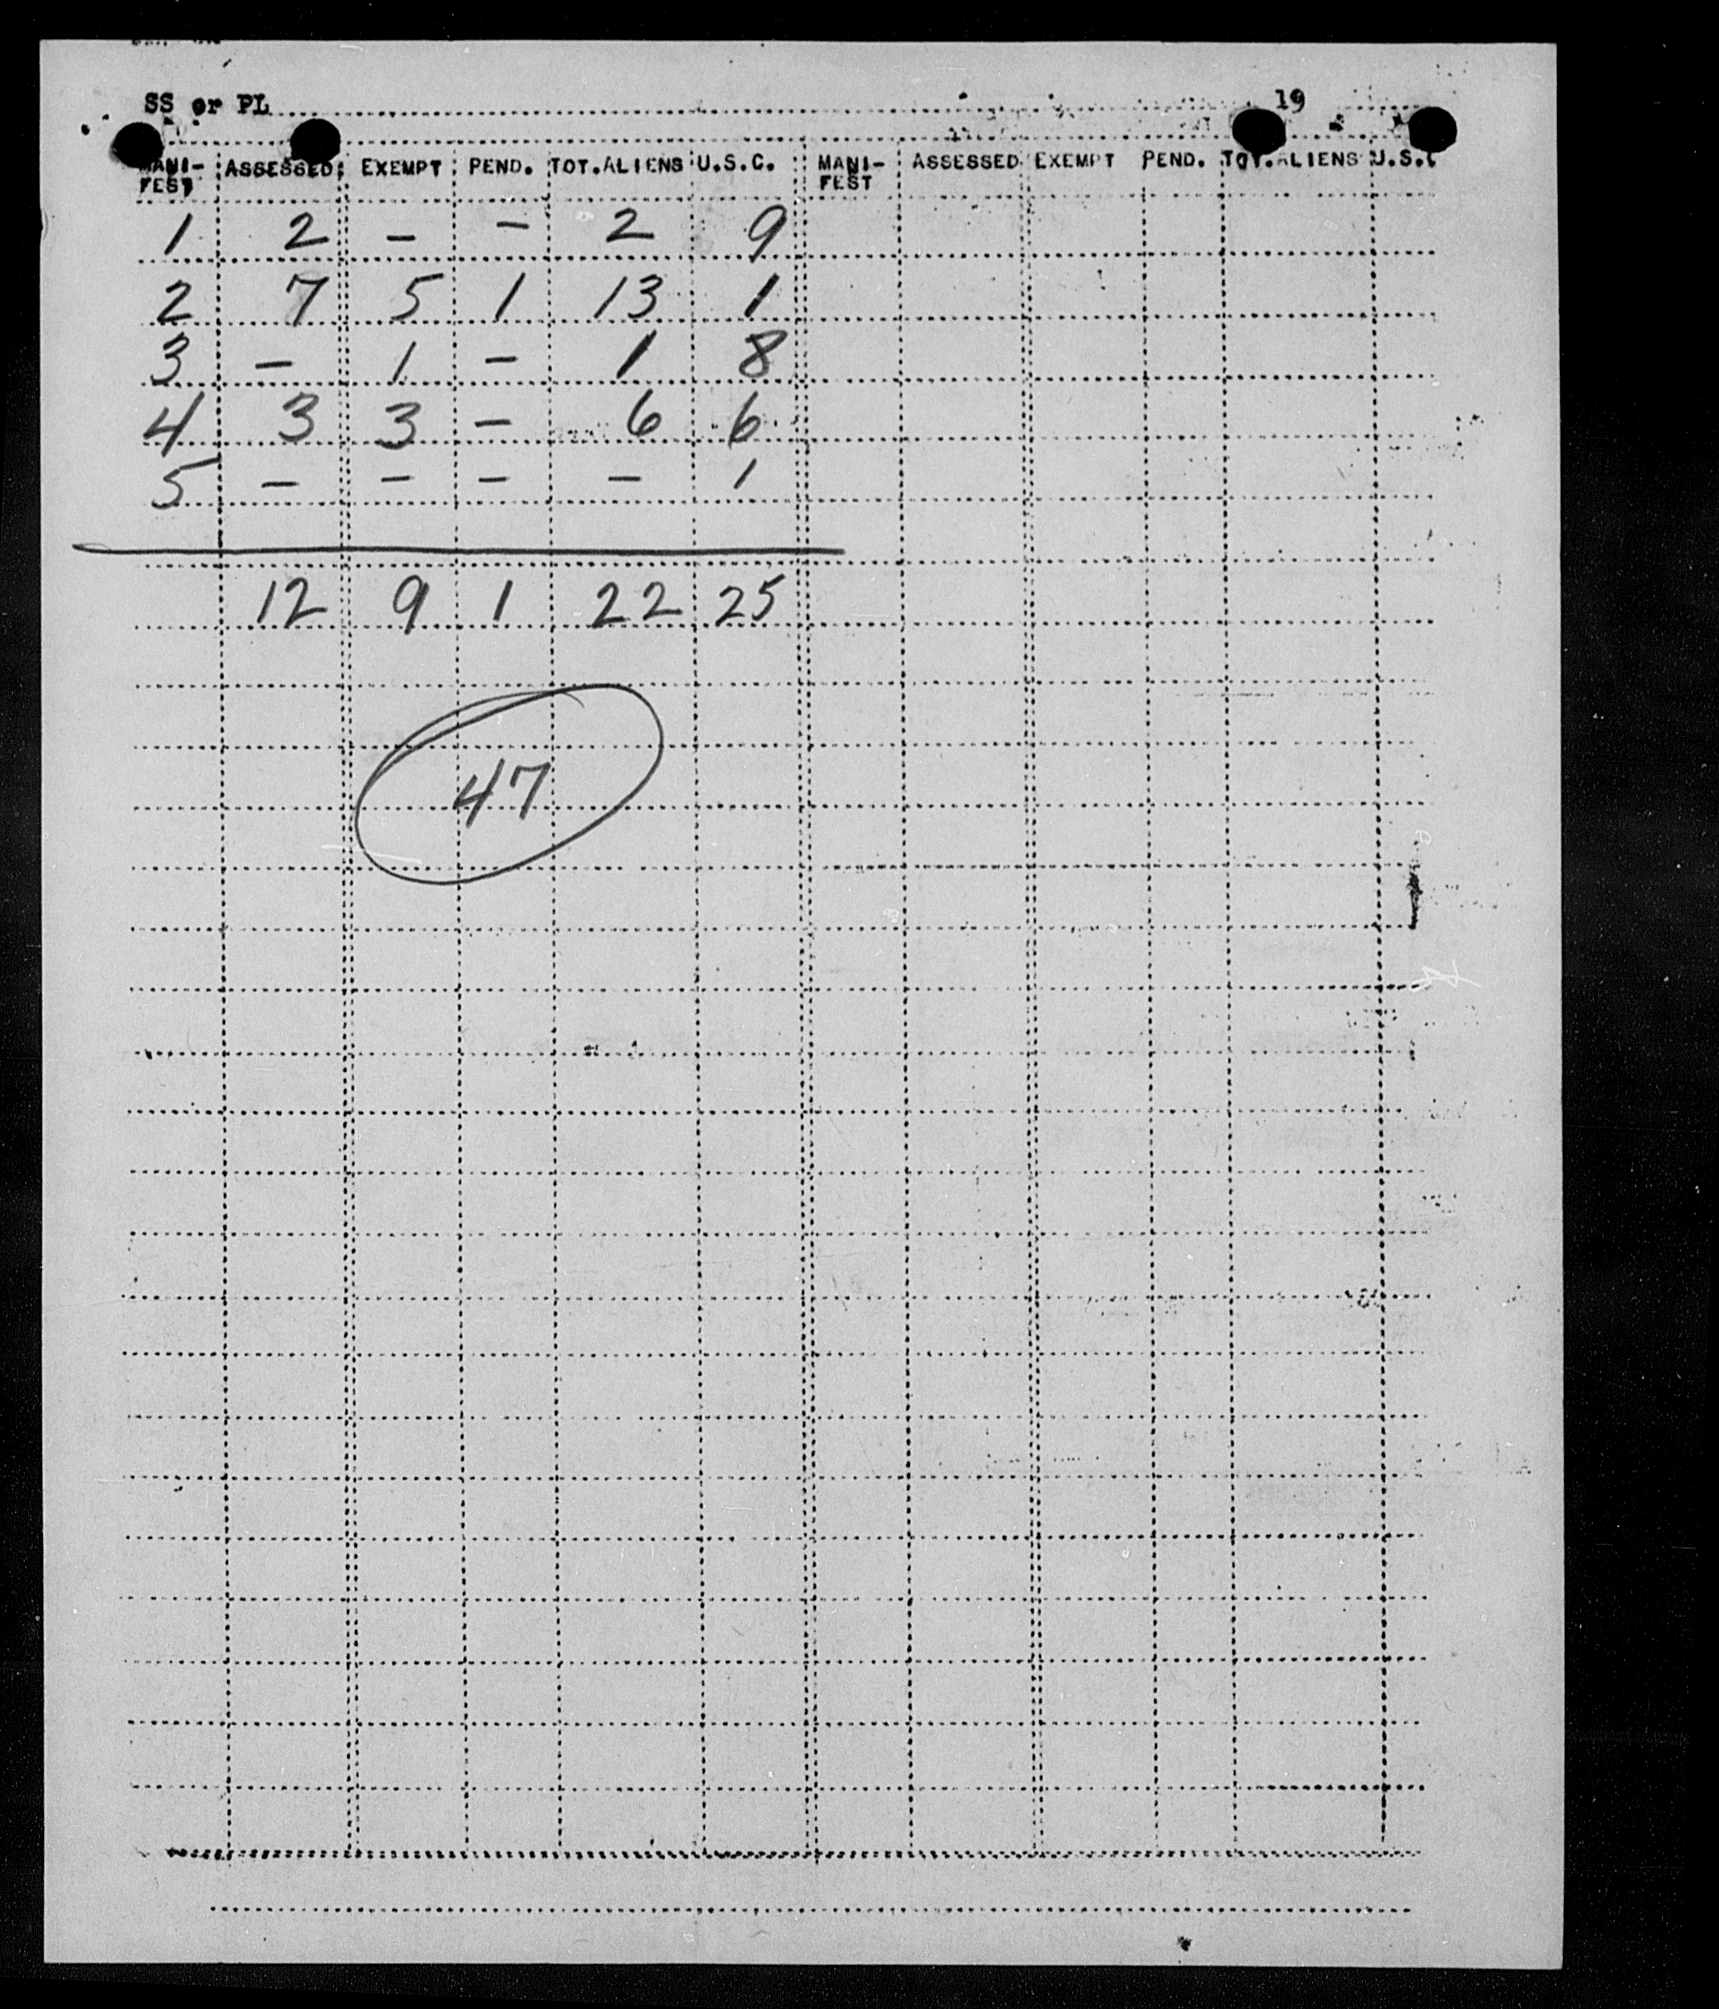 SS or PL 19
MANI-FEST ASSESSED EXEMPT PEND. TOT.ALIENS U.S.C. MANI-FEST ASSESSED EXEMPT PEND. TOT.ALIENS U.S.C
1 2 - - 2 9
2 7 5 1 13 1
3 - 1 - 1 8
4 3 3 - 6 6
5 - - - - 1
12 9 1 22 25
47